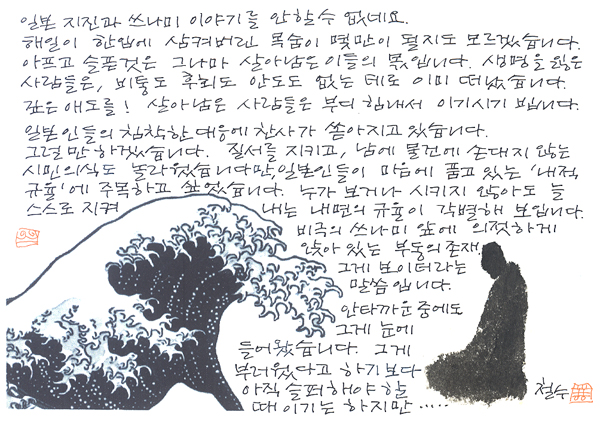 일본 지진과 쓰나미 이야기를 안할 수 없네요.
해일이 한입에 삼켜버린 목숨이 몇만이 될지도 모르겠습니다.
아프고 슬픈것은 그나마 살아남은 이들의 몫입니다. 생명을 잃은
사람들은, 비통도 후회도 안도도 없는 데로 이미 떠났습니다.
깊은 애도를! 살아남은 사람들은 부디 힘내서 이기시기 빕니다.
일본인들의 침착한 대응에 찬사가 쏟아지고 있습니다.
그럴만 하겠습니다. 질서를 지키고, 남에 물건에 손대지 않는
시민의식도 놀라웠습니다만, 일본인들이 마음에 품고 있는 '내적
규율'에 주목하고 싶었습니다. 누가 보거나 시키지 않아도 늘
스스로 지켜 내는 내면의 규율이 각별해 보입니다.
비극의 쓰나미 앞에 의젓하게
앉아 있는 부동의 존재.
그게 보이더라는
말씀입니다.
안타까운 중에도
그게 눈에
들어왔습니다. 그게
부러웠다고 하기보다
아직 슬퍼해야 할
때이기는 하지만·····
철수